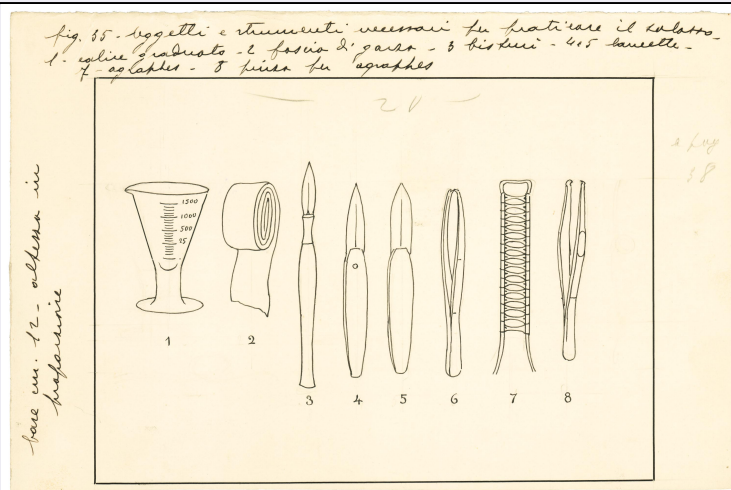 fig. 35 - Oggetti e strumenti necessari per praticare il salasso -
1 - calice graduato - 2 fascia di garza - 3 bisturi - 4 e 5 lancette -
7 - agraphes - 8 pinza per agraphes
- 20 -
a pag
38
base cm. 12 - altezza in
proporzione
1500
1000
500
25
1
2
3
4
5
6
7
8